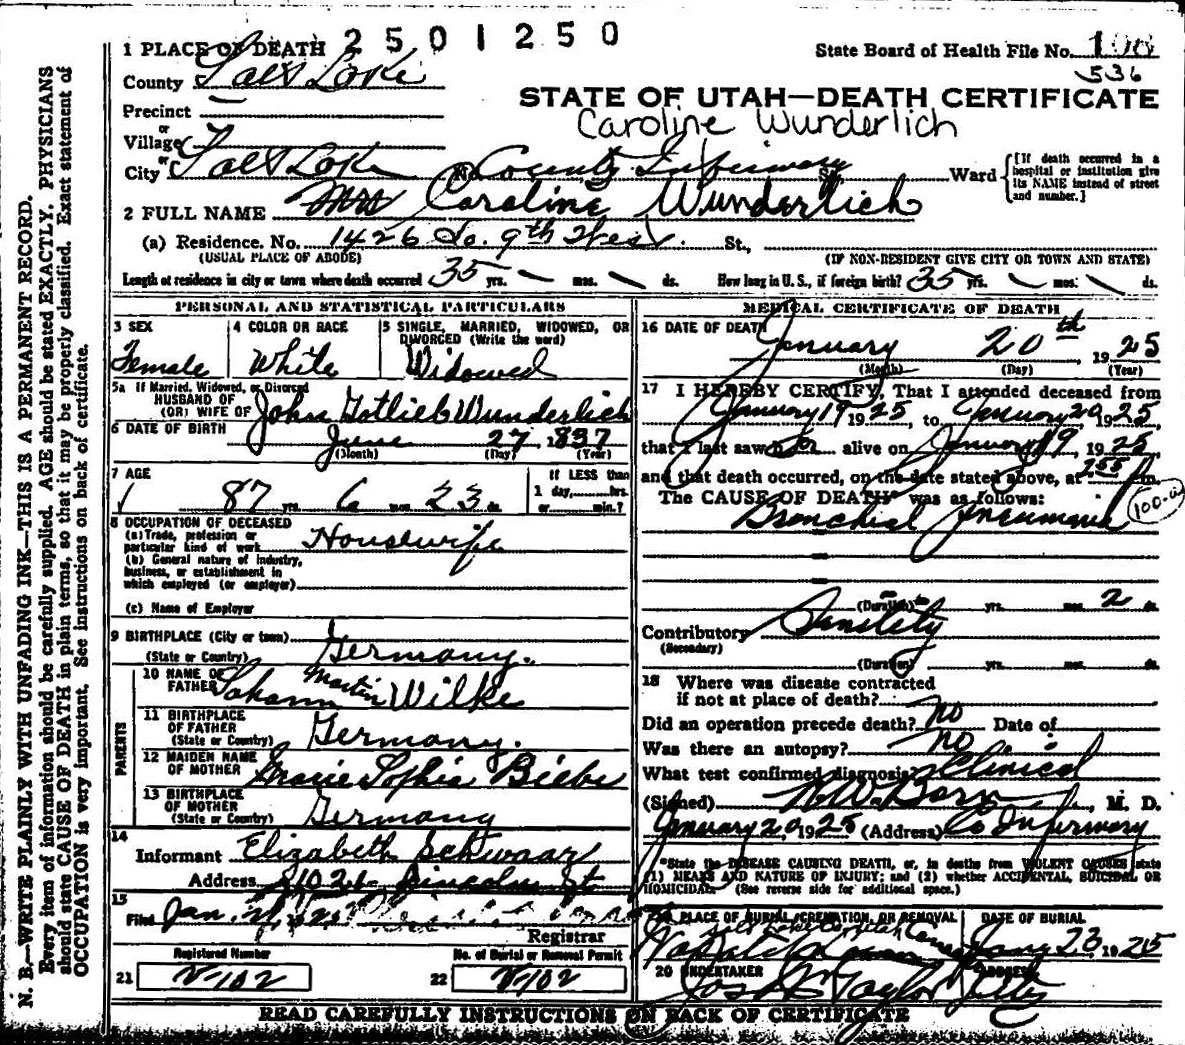 2501250
1 PLACE OF DEATH
State Board of Health File No.
536
County Salt Lake
STATE OF UTAH—DEATH CERTIFICATE
Precinct —
Caroline Wunderlich
or
Village
City or Salt Lake No. County Infirmary St. Ward {[If death occurred in a hospital or institution give its NAME instead of street and number.]
2 FULL NAME Mrs Caroline Wunderlich
(a) Residence. No. 1426 So. 9th West. St.,
(USUAL PLACE OF ABODE) (IF NON-RESIDENT GIVE CITY OR TOWN AND STATE)
Length of residence in city or town where death occurred 35 yrs. — mos. \ ds. How long in U. S., if foreign birth? 35 yrs. — mos. \ ds.
PERSONAL AND STATISTICAL PARTICULARS
3 SEX
Female
4 COLOR OR RACE
White
5 SINGLE, MARRIED, WIDOWED, OR
DIVORCED (Write the word)
Widowed
5a If Married, Widowed, or Divorced
HUSBAND OF
(OR) WIFE OF John Gotlieb Wunderlich
6 DATE OF BIRTH June 27, 1837
(Month) (Day) (Year)
7 AGE
87 yrs. 6 mos. 23 ds.
If LESS than
1 day,......hrs.
or......min.?
8 OCCUPATION OF DECEASED
(a) Trade, profession or
particular kind of work Housewife
(b) General nature of industry,
business, or establishment in
which employed (or employer)
(c) Name of Employer
9 BIRTHPLACE (City or town)
(State or Country) Germany.
PARENTS
10 NAME OF
FATHER Johann Martin Wilke
11 BIRTHPLACE
OF FATHER
(State or Country) Germany.
12 MAIDEN NAME
OF MOTHER Marie Sophie Biebe
13 BIRTHPLACE
OF MOTHER
(State or Country) Germany
14
Informant Elizabeth Schwaar
Address Lincoln St
15
Filed Jan. 21, 1925
Registrar
Registered Number
21 V-102
No. of Burial or Removal Permit
22 V-102
MEDICAL CERTIFICATE OF DEATH
16 DATE OF DEATH
January 20th, 1925
(Month) (Day) (Year)
17 I HEREBY CERTIFY, That I attended deceased from
January 19 1925, to January 20, 1925,
that I last saw her alive on January 19, 1925,
and that death occurred, on the date stated above, at 2:55 P. m.
The CAUSE OF DEATH* was as follows:
Bronchial Pneumonia
(Duration) yrs. mos. 2 ds.
Contributory Senility
(Secondary)
(Duration) yrs. mos. ds.
18 Where was disease contracted
if not at place of death?
Did an operation precede death? no Date of
Was there an autopsy? no
What test confirmed diagnosis? Clinical
(Signed) , M. D.
January 20, 1925 (Address) Co Infirmary
*State the DISEASE CAUSING DEATH, or, in deaths from VIOLENT CAUSES state
(1) MEANS AND NATURE OF INJURY; and (2) whether ACCIDENTAL, SUICIDAL OR
HOMICIDAL. (See reverse side for additional space.)
19 PLACE OF BURIAL, CREMATION, OR REMOVAL
Salt Lake City, Utah
DATE OF BURIAL
Jany 23, 1925
20 UNDERTAKER
Jos Wm Taylor
ADDRESS
City
READ CAREFULLY INSTRUCTIONS ON BACK OF CERTIFICATE
N. B.—WRITE PLAINLY WITH UNFADING INK—THIS IS A PERMANENT RECORD.
Every item of information should be carefully supplied. AGE should be stated EXACTLY. PHYSICIANS
should state CAUSE OF DEATH in plain terms, so that it may be properly classified. Exact statement of
OCCUPATION is very important. See instructions on back of certificate.